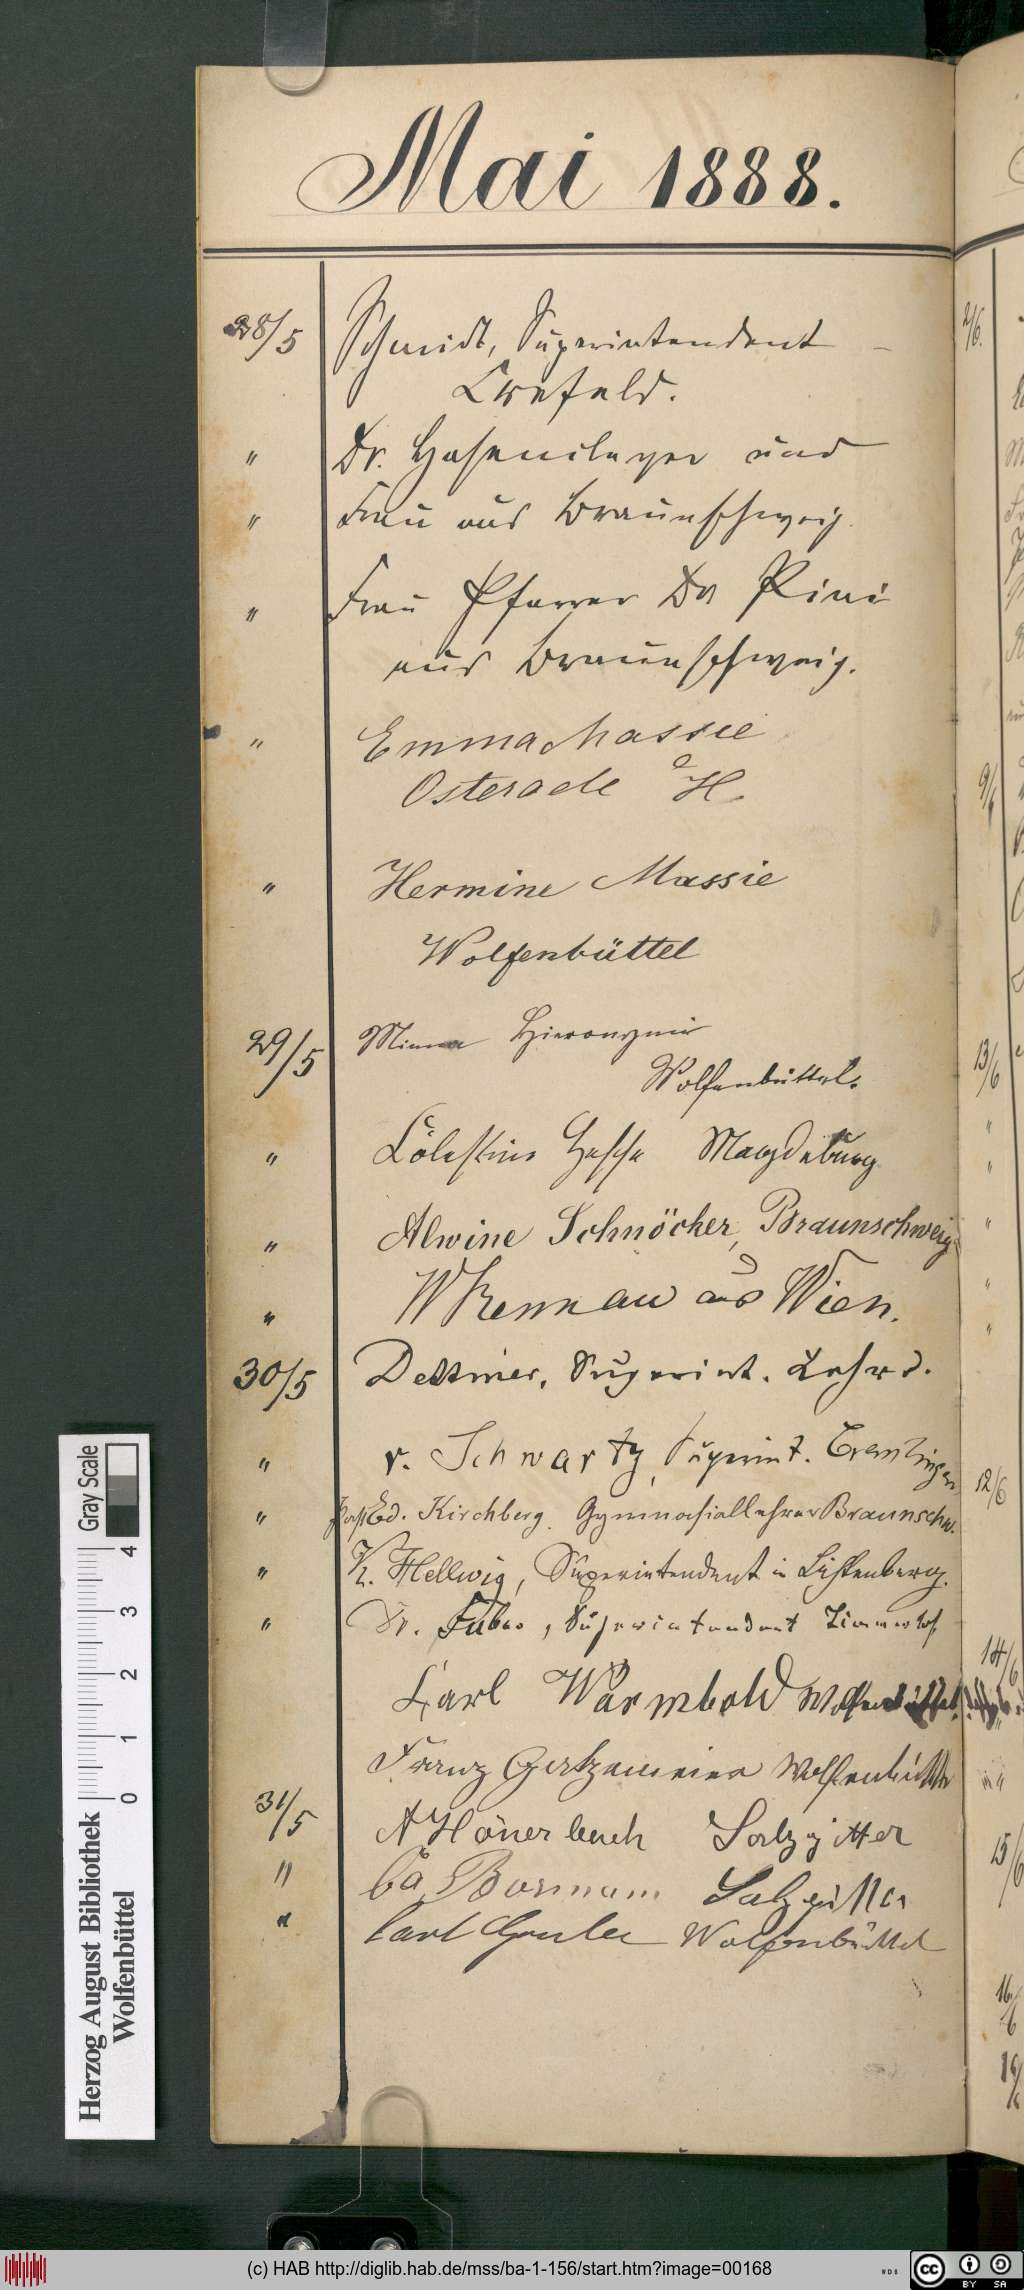 Mai 1888.
28/5 Schmidt, Superintendent –
Crefeld.
" Dr. Hasenclever und
" Frau aus Braunschweig.
" Frau Pfarrer Dr Pini
aus Braunschweig.
" Emma Massie
Osterode a H.
" Hermine Massie
Wolfenbüttel
29/5 Minna Hieronymus
Wolfenbüttel.
" Cölestine Hesse Magdeburg
" Alwine Schnöcker, Braunschweig.
" W Rennau aus Wien.
30/5 Dettmer, Superint. Lehrd.
" v. Schwartz, Superint. Cremlingen
" Ed. Kirchberg. Gymnasiallehrer Braunschw.
" K. Hellwig, Superintendent in Lichtenberg.
" Dr. Superintendent
Carl Warmbold Wolfenbüttel.
Franz Wolfenbüttel
31/5 A Hönerbach Salzgitter
" Bormann Salzgitter
" Carl Wolfenbüttel
2/6.
9/6
13/6
"
"
"
"
"
12/6
14/6
15/6
16/6
Gray Scale
0 1 2 3 4
Herzog August Bibliothek
Wolfenbüttel
(c) HAB http://diglib.hab.de/mss/ba-1-156/start.htm?image=00168
WDB
cc
BY SA